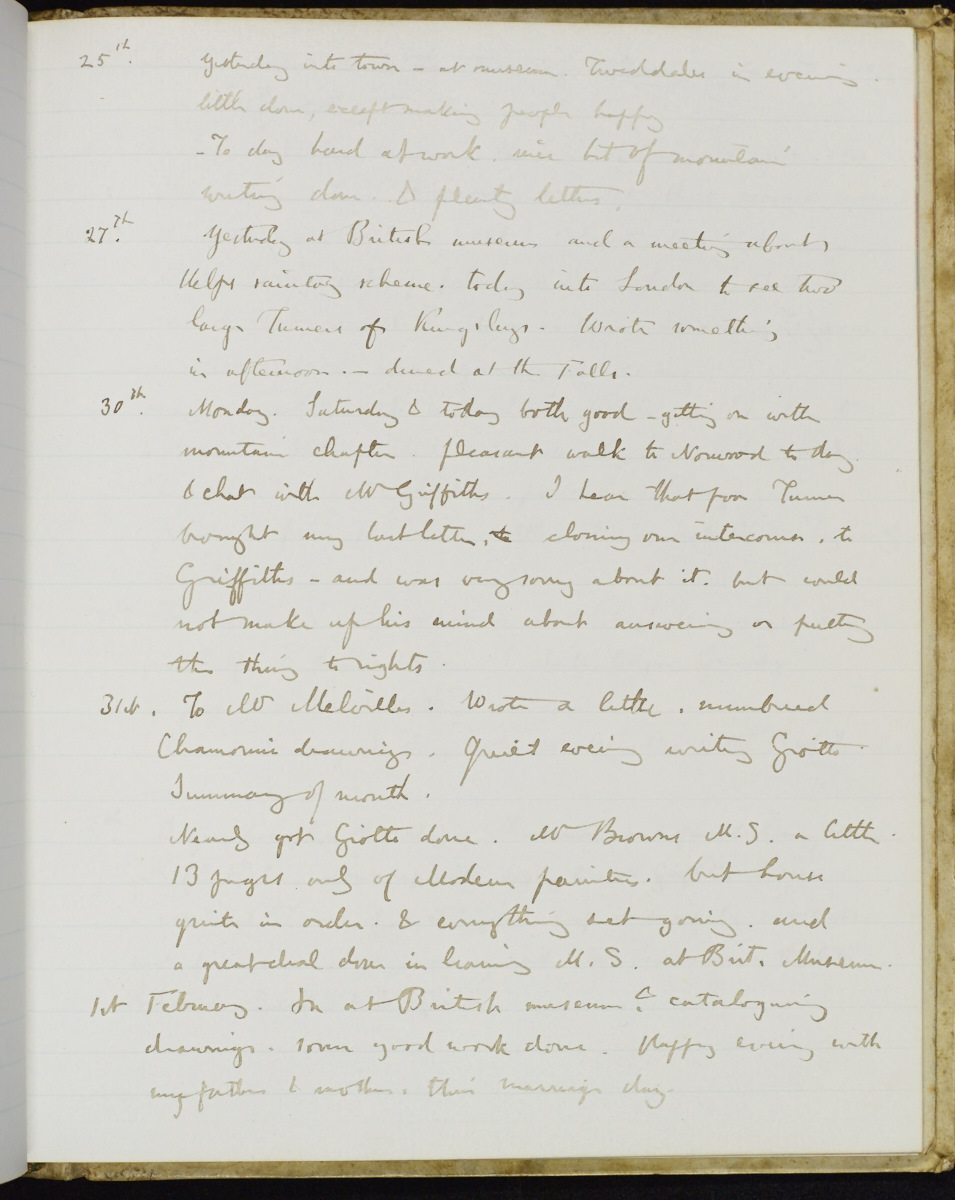 25th. Yesterday into town - at museum. Tweddales in evening.
little done, except making people happy
- To day hard at work. nice bit of mountain
writing done. & plenty letters.
27th. Yesterday at British museum and a meeting about
Helps sanitary scheme. today into London to see two
large Turners of Kingsleys - Wrote something
in afternoon. - dined at the Falls.
30th. Monday. Saturday & today both good - getting on with
mountain chapter. pleasant walk to Norwood to day
& chat with Mr Griffiths. I hear that poor Turner
brought my last letter, closing our intercourse, to
Griffiths - and was very sorry about it. but could
not make up his mind about answering or putting
the thing to rights.
31st. To Mr Melvilles. Wrote a little. numbered
Chamouni drawings. Quiet evening writing Giotto.
Summary of month.
Nearly got Giotto done. Mr Browns M.S. a little.
13 pages only of Modern painters. but house
quite in order. & everything set going. and
a great deal done in learning M.S. at Brit. Museum.
1st February. In at British museum, cataloguing
drawings. some good work done. Happy evening with
my father & mother. their marriage day.